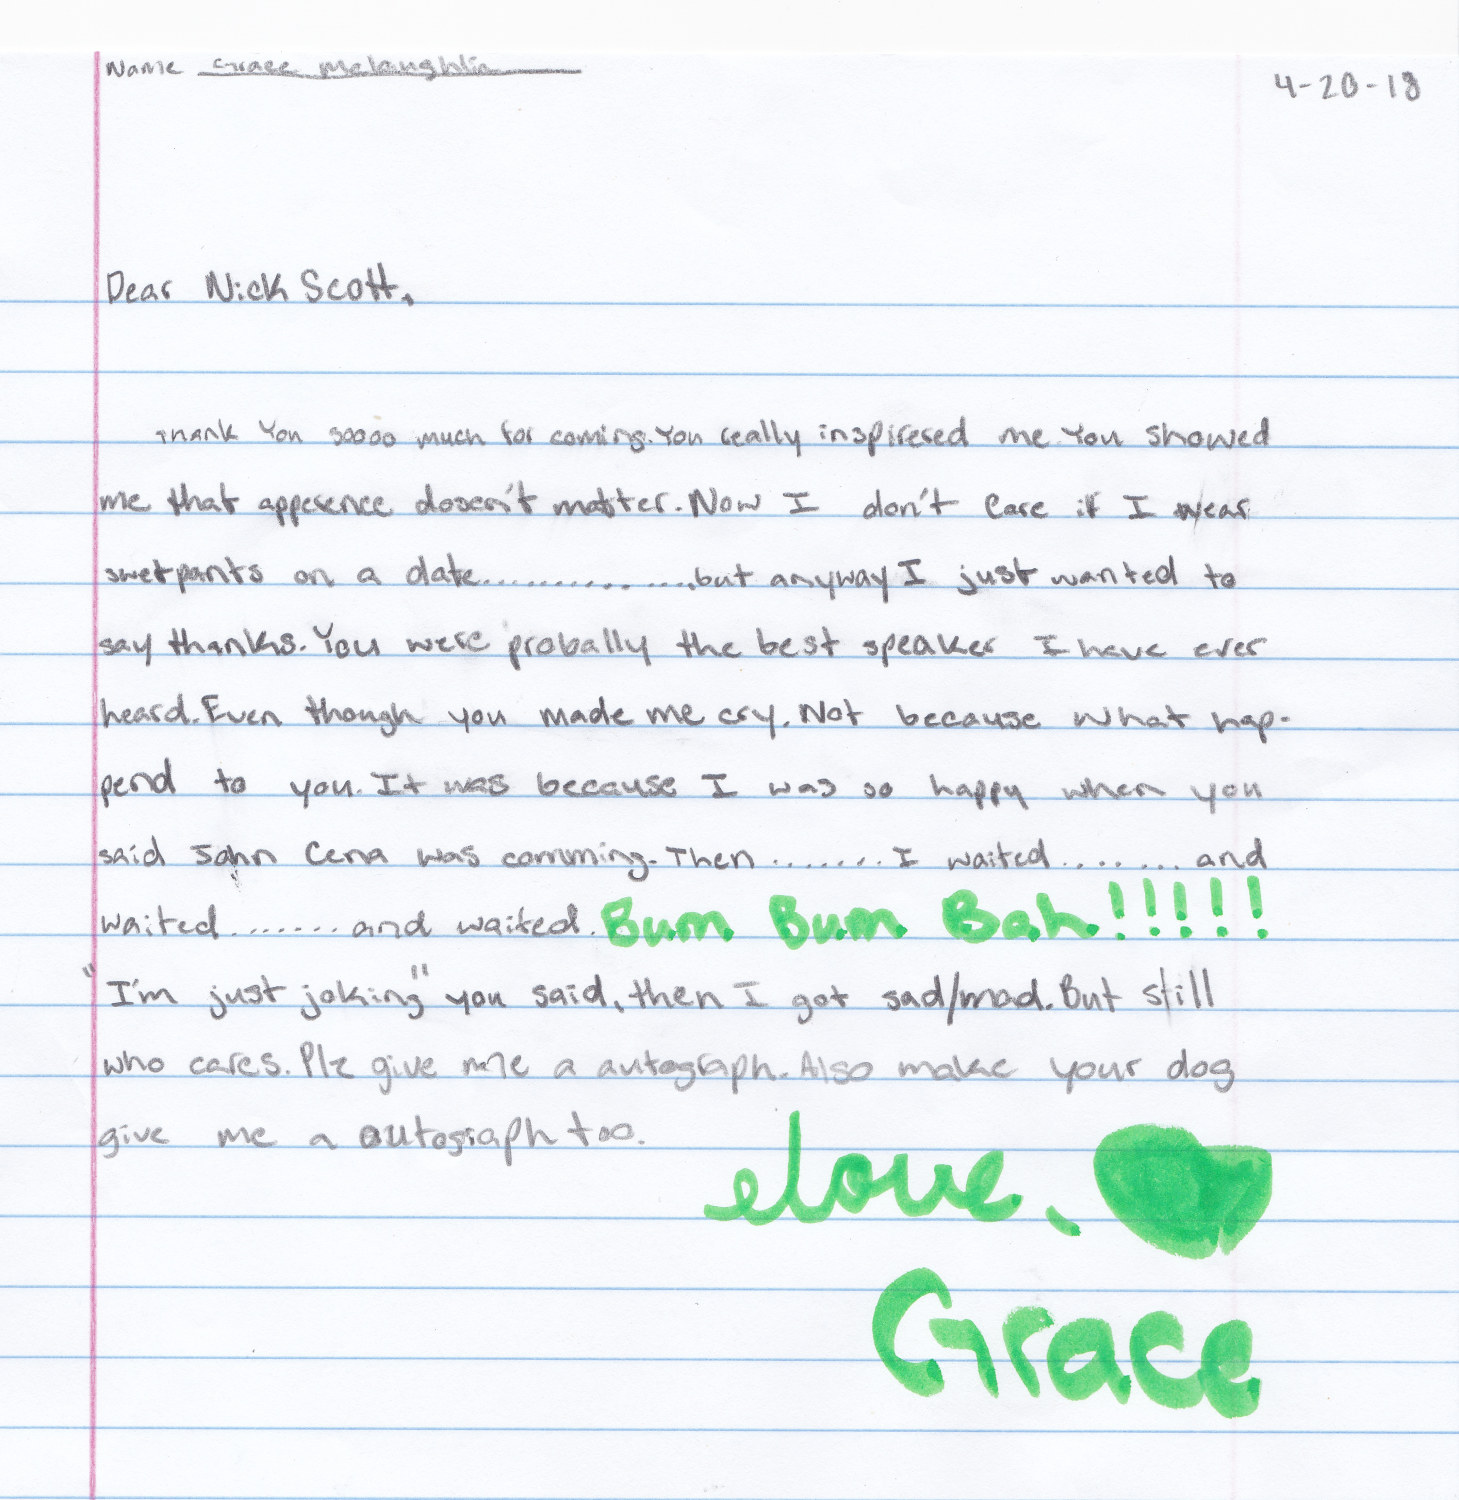 Name Grace Mclaughlin
4-20-18
Dear Nick Scott,
Thank You soooo much for coming. You really inspiresed me. You showed
me that appesence dosen't matter. Now I don't care if I wear
swetpants on a date................but anyway I just wanted to
say thanks. You were probally the best speaker I have ever
heard. Even though you made me cry. Not because what hap-
pend to you. It was because I was so happy when you
said John Cena was comming. Then ....... I waited ....... and
waited ....... and waited. Bum Bum Bah!!!!!
"I'm just joking" you said, then I got sad/mad. But still
who cares. Plz give me a autograph. Also make your dog
give me a autograph too.
love,
Grace